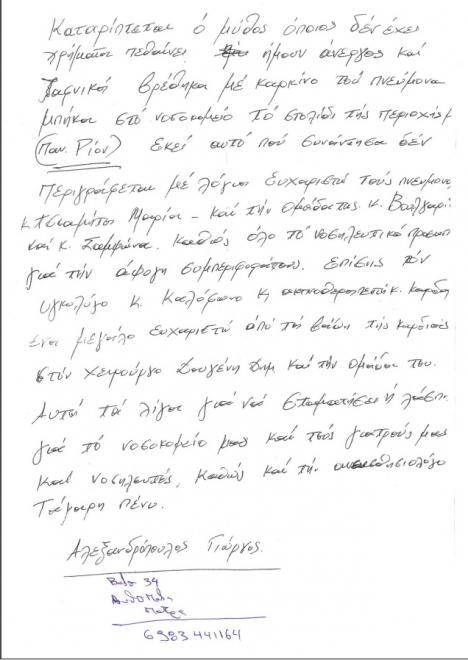 Καταρίπτεται ό μύθος όποιος δέν έχει
χρήματα πεθαίνει ήμουν άνεργος και
ξαφνικά βρέθηκα μέ καρκίνο τού πνεύμονα
μπήκα στό νοσοκομείο τό στολίδι τής περιοχής μ
(Παν. Ρίον) Εκεί αυτό πού συνάντησα δέν
περιγράφεται μέ λόγια Ευχαριστώ τούς πνευμονο
κ. Τσιαμήτα Μαρία - και τήν ομάδα της κ. Βαλγαρι
και κ. Σαμψώνα. Καθώς όλο τό νοσηλευτικό προσωπ
γιά τήν άψογη συμπεριφορά τους. Επίσης τόν
ογκολόγο κ. Καλόφωνο κ ακτινοθεραπευτή κ. Καρδα
ένα μεγάλο ευχαριστώ από τά βάθη τής καρδιάς
στόν χειρούργο Δουγένη Δημ και τήν ομάδα του.
Αυτά τά λίγα γιά νά σταματήσει ή λάσπη
γιά τό νοσοκομείο μας και τούς γιατρούς μας
και νοσηλευτές, καθώς και τήν αναισθησιολόγο
Τσάμαρη Πένυ.
Αλεξανδρόπουλος Γιώργος.
34
Πάτρα
6983 441164